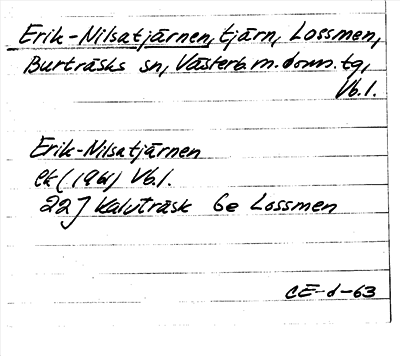 Erik-Nilsatjärnen, tjärn, Lossmen,
Burträsks sn, Västerb.m.dom.tg,
Vb.l.
Erik-Nilsatjärnen
ek (1961) Vb.l.
22J Kalvträsk 6e Lossmen
CE-d-63